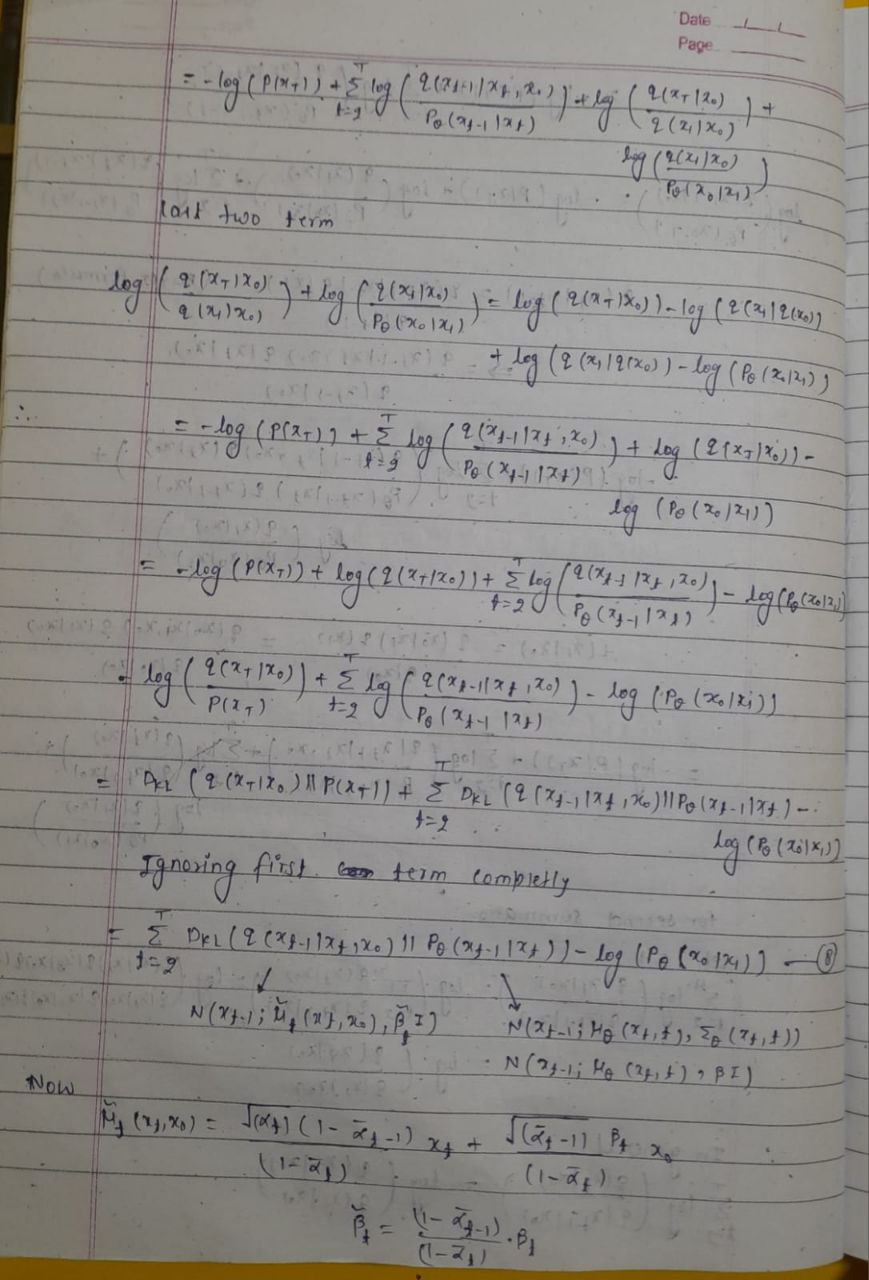 Date
Page
= -log (P(x_T)) + Σ_{t=2}^{T} log ( q(x_{t-1}|x_t, x_0) / P_θ(x_{t-1}|x_t) ) + log ( q(x_T|x_0) / q(x_1|x_0) ) +
log ( q(x_1|x_0) / P_θ(x_0|x_1) )
last two term
log ( q(x_T|x_0) / q(x_1|x_0) ) + log ( q(x_1|x_0) / P_θ(x_0|x_1) ) = log (q(x_T|x_0)) - log (q(x_1|q(x_0))
+ log (q(x_1|q(x_0)) - log (P_θ(x_0|x_1))
∴ = -log (P(x_T)) + Σ_{t=2}^{T} log ( q(x_{t-1}|x_t, x_0) / P_θ(x_{t-1}|x_t) ) + log (q(x_T|x_0)) -
log (P_θ(x_0|x_1))
= -log (P(x_T)) + log (q(x_T|x_0)) + Σ_{t=2}^{T} log ( q(x_{t-1}|x_t, x_0) / P_θ(x_{t-1}|x_t) ) - log (P_θ(x_0|x_1)
= log ( q(x_T|x_0) / P(x_T) ) + Σ_{t=2}^{T} log ( q(x_{t-1}|x_t, x_0) / P_θ(x_{t-1}|x_t) ) - log (P_θ(x_0|x_1))
= D_{KL} (q(x_T|x_0) || P(x_T)) + Σ_{t=2}^{T} D_{KL} (q(x_{t-1}|x_t, x_0) || P_θ(x_{t-1}|x_t) -
log (P_θ(x_0|x_1)
Ignoring first term completly
= Σ_{t=2}^{T} D_{KL} (q(x_{t-1}|x_t, x_0) || P_θ(x_{t-1}|x_t)) - log (P_θ(x_0|x_1)) — ⑧
N(x_{t-1}; μ̃_t(x_t, x_0), β̃_t I) N(x_{t-1}; μ_θ(x_t, t), Σ_θ(x_t, t))
N(x_{t-1}; μ_θ(x_t, t), βI)
Now
μ̃_t(x_t, x_0) = √(α_t) (1 - ᾱ_{t-1}) / (1 - ᾱ_t) x_t + √(ᾱ_{t-1}) β_t / (1 - ᾱ_t) x_0
β̃_t = (1 - ᾱ_{t-1}) / (1 - ᾱ_t) · β_t